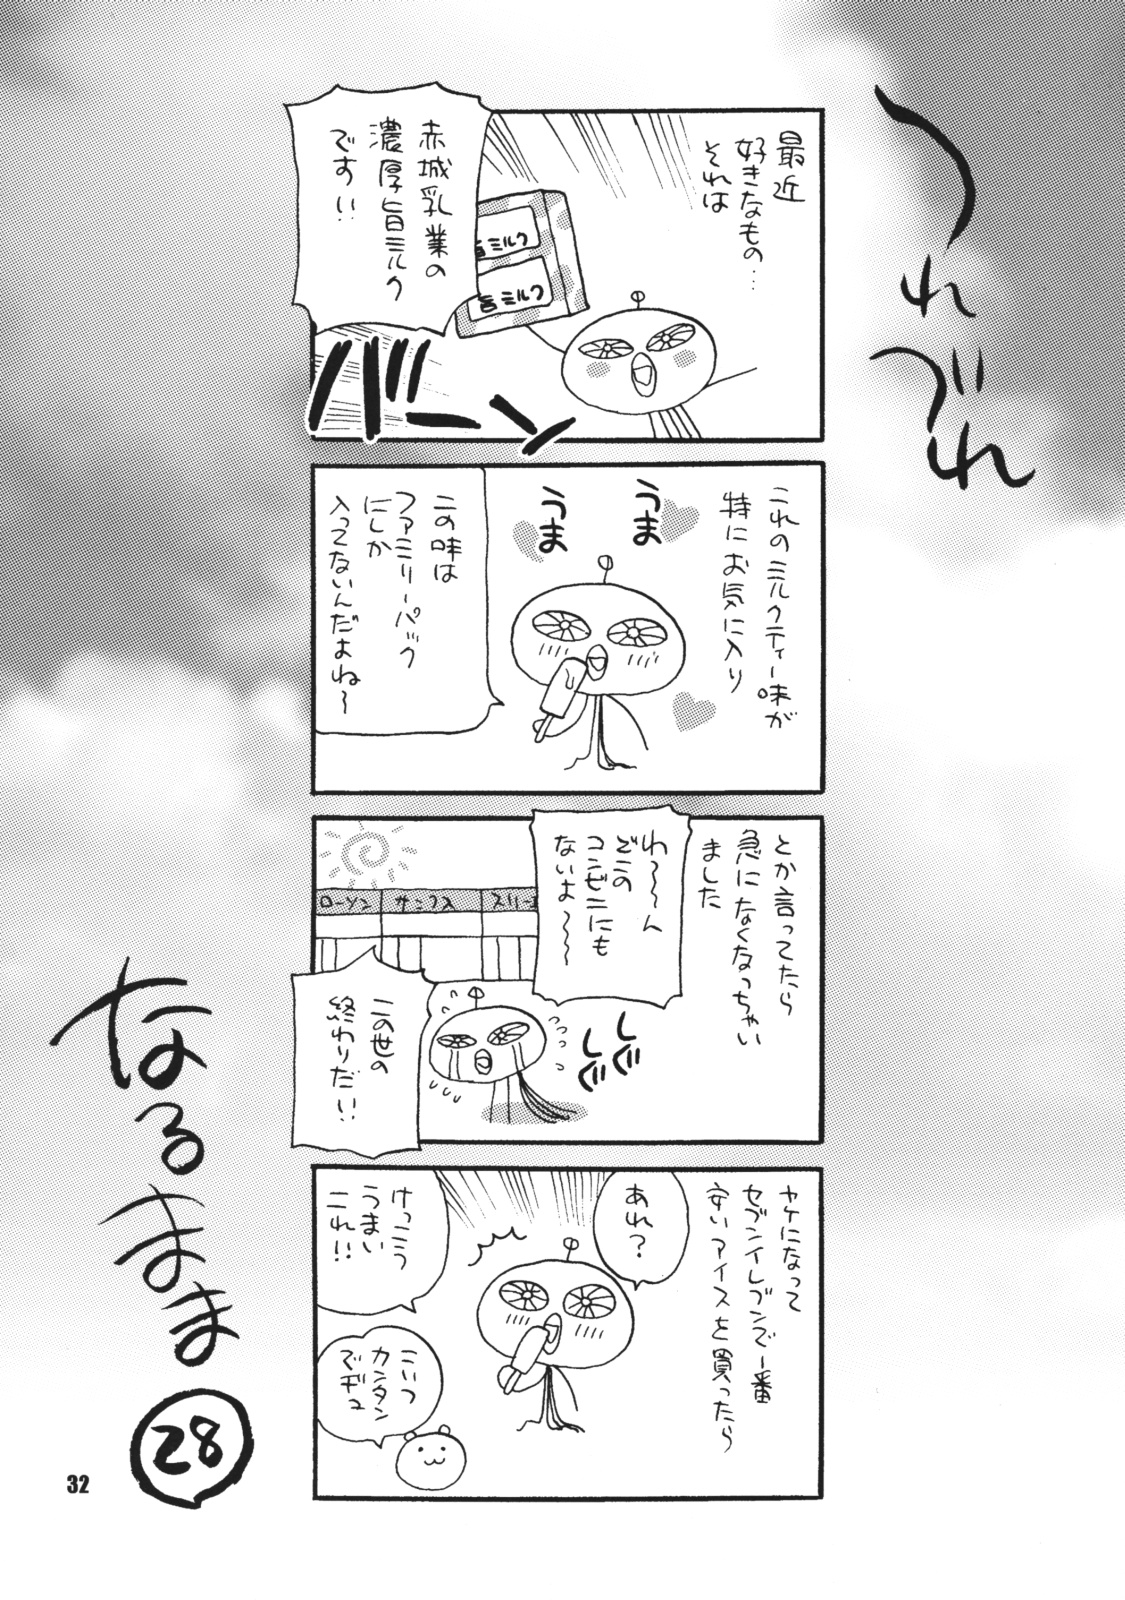 つれづれ
なるまま
28
最近
好きなもの…
それは
赤城乳業の
濃厚旨ミルク
です!!
旨ミルク
旨ミルク
バーン
これのミルクティー味が
特にお気に入り
うま
うま
この味は
ファミリーパック
にしか
入ってないんだよね〜
とか言ってたら
急になくなっちゃい
ました
わ〜〜〜ん
どこの
コンビニにも
ないよ〜〜〜
ローソン
サンクス
スリー
しぐ
しぐ
この世の
終わりだ!!
ヤケになって
セブンイレブンで一番
安いアイスを買ったら
あれ?
けっこう
うまい
これ!!
こいつ
カンタン
でヂュ
32